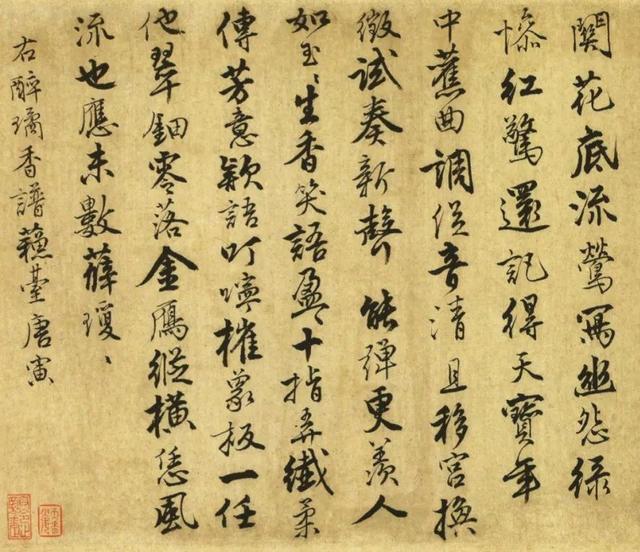 關花底流鶯寫幽怨綠
慘紅驚還記得天寶年
中舊曲調促音清且移宮換
徵試奏新聲能彈更羨人
如玉〻生香笑語盈〻十指弄纖柔
傳芳意款語叮嚀摧象板一任
他翠鈿零落金鴈縱橫恁風
流也應未數薛瓊〻
右醉璚香譜蘇臺唐寅